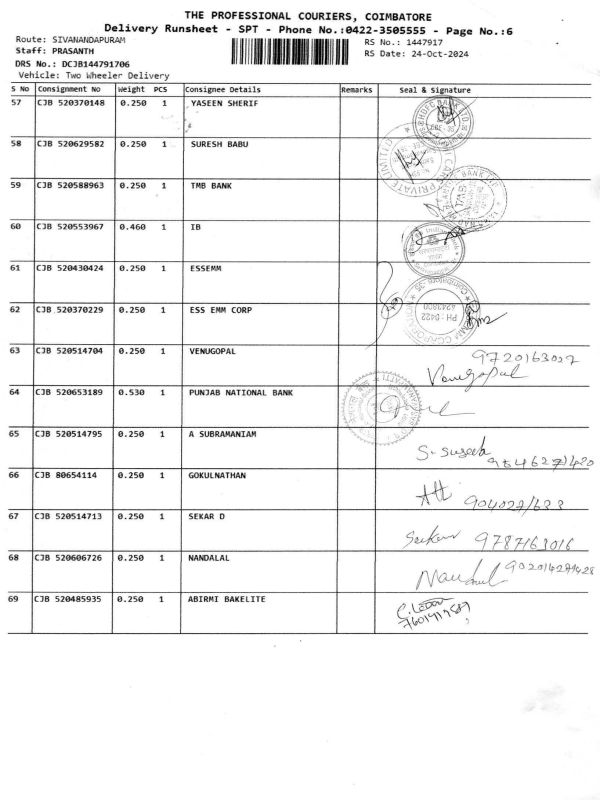 THE PROFESSIONAL COURIERS, COIMBATORE
Delivery Runsheet - SPT - Phone No.:0422-3505555 - Page No.:6
Route: SIVANANDAPURAM
RS No.: 1447917
Staff: PRASANTH
RS Date: 24-Oct-2024
DRS No.: DCJB144791706
Vehicle: Two Wheeler Delivery
S No Consignment No Weight PCS Consignee Details Remarks Seal & Signature
57 CJB 520370148 0.250 1 YASEEN SHERIF
58 CJB 520629582 0.250 1 SURESH BABU
59 CJB 520588963 0.250 1 TMB BANK
60 CJB 520553967 0.460 1 IB
61 CJB 520430424 0.250 1 ESSEMM
62 CJB 520370229 0.250 1 ESS EMM CORP
PH : 0422
63 CJB 520514704 0.250 1 VENUGOPAL 9720163027
Venugopal
64 CJB 520653189 0.530 1 PUNJAB NATIONAL BANK
65 CJB 520514795 0.250 1 A SUBRAMANIAM
66 CJB 80654114 0.250 1 GOKULNATHAN
67 CJB 520514713 0.250 1 SEKAR D 9787163016
68 CJB 520606726 0.250 1 NANDALAL
69 CJB 520485935 0.250 1 ABIRMI BAKELITE